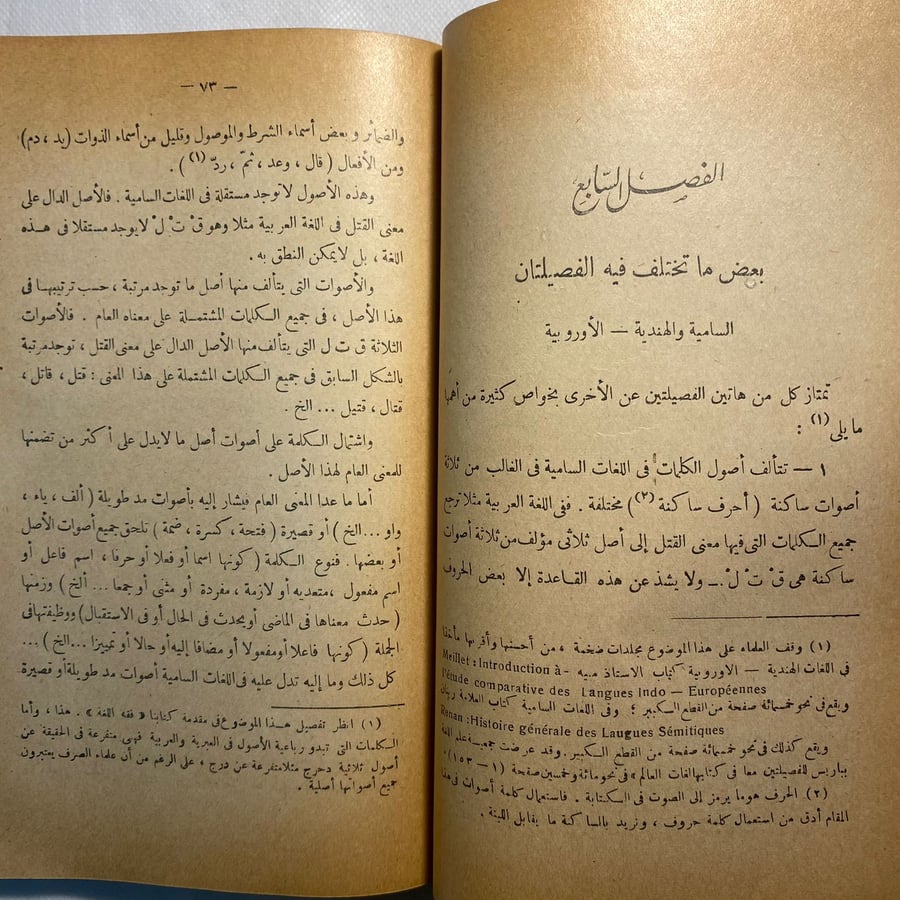 الفصل السابع
بعض ما تختلف فيه الفصيلتان
السامية والهندية — الأوروبية
تمتاز كل من هاتين الفصيلتين عن الأخرى بخواص كثيرة من أهمها
ما يلى (١) :
١ — تتألف أصول الكلمات فى اللغات السامية فى الغالب من ثلاثة
أصوات ساكنة ( أحرف ساكنة (٢) ) مختلفة . ففى اللغة العربية مثلا ترجع
جميع الكلمات التى فيها معنى القتل إلى أصل ثلاثى مؤلف من ثلاثة أصوات
ساكنة هى قْ تْ لْ . ولا يشذ عن هذه القاعدة إلا بعض الحروف
(١) وقف العلماء على هذا الموضوع مجلدات ضخمة ، من أحسنها وأقربها مأخذا
فى اللغات الهندية — الأوروبية كتاب الاستاذ مييه Meillet : Introduction à
l'étude comparative des Langues Indo — Européennes
ويقع فى نحو خمسمائة صفحة من القطع الكبير ؛ وفى اللغات السامية كتاب العلامة رينان
Renan : Histoire générale des Laugues Sémitiques
ويقع كذلك فى نحو خمسمائة صفحة من القطع الكبير . وقد عرضت جمعية علم اللغة
بباريس للفصيلتين معا فى كتابها لغات العالم » فى نحو مائة وخمسين صفحة ( ١ — ١٥٣ ) .
(٢) الحرف هو ما يرمز إلى الصوت فى الكتابة . فاستعمال كلمة أصوات فى هذا
المقام أدق من استعمال كلمة حروف ، ونريد بالساكنة ما يقابل اللينة .
— ٧٣ —
والضمائر وبعض أسماء الشرط والموصول وقليل من أسماء الذوات ( يد ، دم )
ومن الأفعال ( قال ، وعد ، ثمّ ، ردّ (١) ) .
وهذه الأصول لا توجد مستقلة فى اللغات السامية . فالأصل الدال على
معنى القتل فى اللغة العربية مثلا وهو قْ تْ لْ لا يوجد مستقلا فى هذه
اللغة ، بل لا يمكن النطق به .
والأصوات التى يتألف منها أصل ما توجد مرتبة ، حسب ترتيبها فى
هذا الأصل ، فى جميع الكلمات المشتملة على معناه العام . فالأصوات
الثلاثة ق ت ل التى يتألف منها الأصل الدال على معنى القتل ، توجد مرتبة
بالشكل السابق فى جميع الكلمات المشتملة على هذا المعنى : قتل ، قاتل ،
قتال ، قتيل ... الخ .
واشتمال الكلمة على أصوات أصل ما لا يدل على أكثر من تضمنها
للمعنى العام لهذا الأصل .
أما ما عدا المعنى العام فيشار إليه بأصوات مد طويلة ( ألف ، ياء ،
واو ... الخ ) أو قصيرة ( فتحة ، كسرة ، ضمة ) تلحق جميع أصوات الأصل
أو بعضها . فنوع الكلمة ( كونها اسما أو فعلا أو حرفا ، اسم فاعل أو
اسم مفعول ، متعدية أو لازمة ، مفردة أو مثنى أو جمعا ... ألخ ) وزمنها
( حدث معناها فى الماضى أو يحدث فى الحال أو فى الاستقبال ) ووظيفتها فى
الجملة ( كونها فاعلا أو مفعولا أو مضافا إليه أو حالا أو تمييزا ... الخ ) ...
كل ذلك وما إليه تدل عليه فى اللغات السامية أصوات مد طويلة أو قصيرة
(١) انظر تفصيل هذا الموضوع فى مقدمة كتابنا « فقه اللغة » . هذا ، وأما
الكلمات التى تبدو رباعية الأصول فى العبرية والعربية فهى متفرعة فى الحقيقة عن
أصول ثلاثية دحرج مثلا متفرعة عن درج ، على الرغم من أن علماء الصرف يعتبرون
جميع أصواتها أصلية .